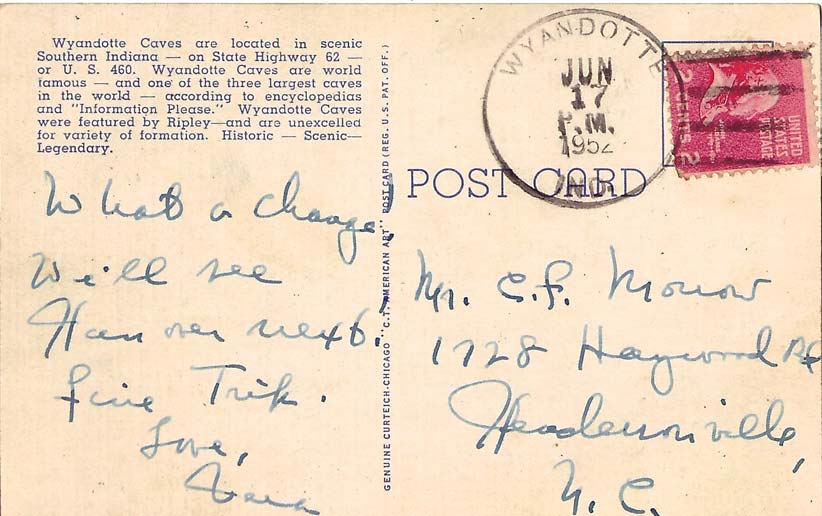 Wyandotte Caves are located in scenic
Southern Indiana — on State Highway 62 —
or U. S. 460. Wyandotte Caves are world
famous — and one of the three largest caves
in the world — according to encyclopedias
and "Information Please." Wyandotte Caves
were featured by Ripley—and are unexcelled
for variety of formation. Historic — Scenic—
Legendary.
What a change!
We'll see
Hanover next.
Fine Trip.
Love,
GENUINE CURTEICH-CHICAGO "C.T. AMERICAN ART" POST CARD (REG. U.S. PAT. OFF.)
WYANDOTTE
JUN
17
P.M.
1952
IND.
2 CENTS 2
UNITED
STATES
POSTAGE
POST CARD
Mr. C. F. Morrow
1728 Haywood Rd
Hendersonville,
N. C.